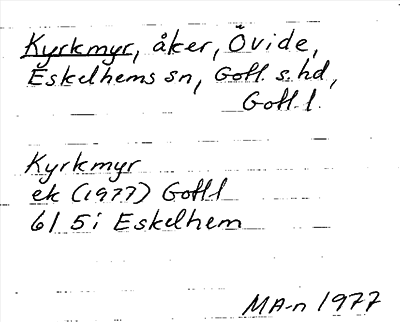 Kyrkmyr, åker, Övide,
Eskelhems sn, Gotl. s. hd,
Gotl. l.
Kyrkmyr
ek (1977) Gotl l
6I 5i Eskelhem
MA-n 1977